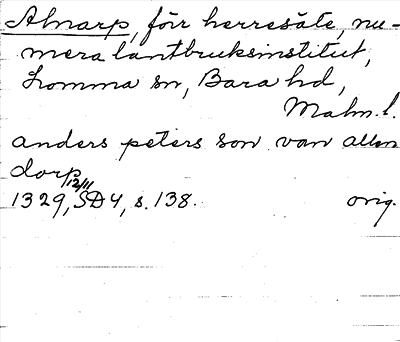 Alnarp, förr herresäte, nu-
mera lantbruksinstitut,
Lomma sn, Bara hd,
Malm. l.
anders peters son van allen
dorp
1329 12/11, SD 4, s. 138. orig.